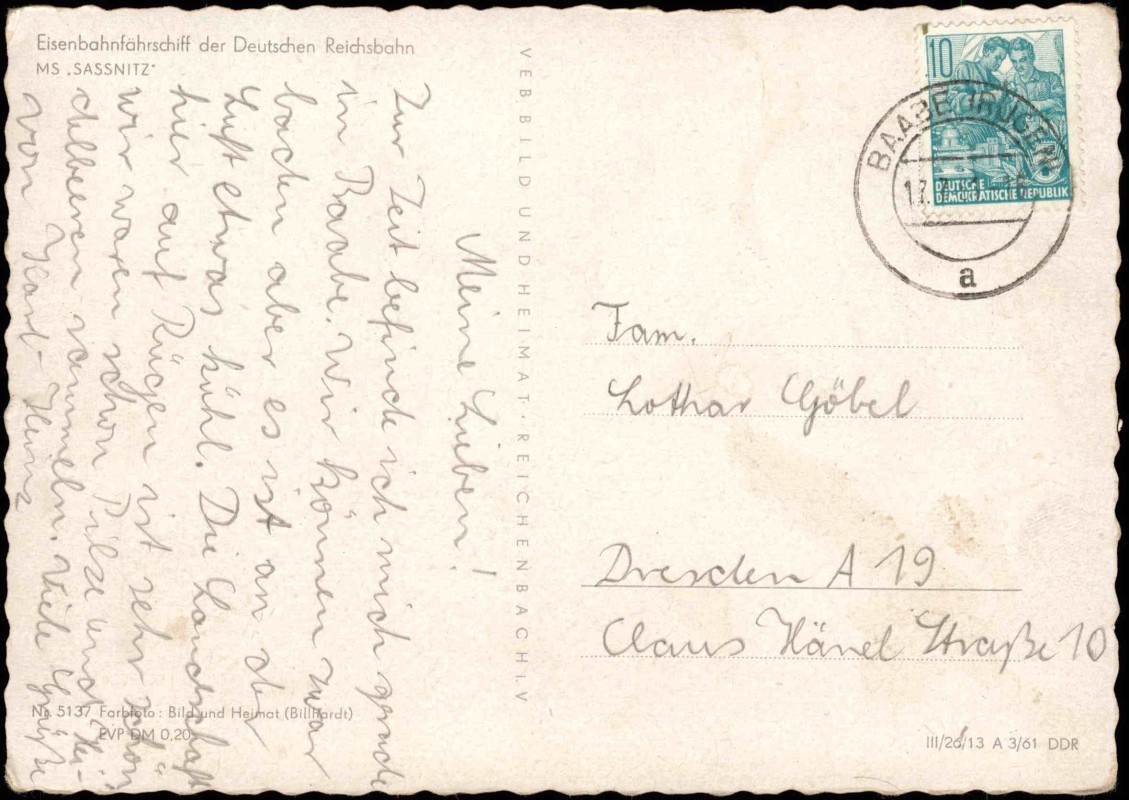 Eisenbahnfährschiff der Deutschen Reichsbahn
MS „SASSNITZ"
Meine Lieben!
Zur Zeit befinde ich mich gerade
in Baabe. Wir können zwar
baden aber es ist an der
Luft etwas kühl. Die Landschaft
hier auf Rügen ist sehr schön
wir waren schon Pilze und Hei-
delbeeren sammeln. Viele Grüße
von Karl-Heinz
VEB BILD UND HEIMAT · REICHENBACH I. V
10
DEUTSCHE
DEMOKRATISCHE REPUBLIK
BAABE (RÜGEN)
17.
a
Fam.
Lothar Göbel
Dresden A 19
Claus Hänel Straße 10
Nr. 5137 Farbfoto: Bild und Heimat (Billhardt)
EVP DM 0,20
III/26/13 A 3/61 DDR